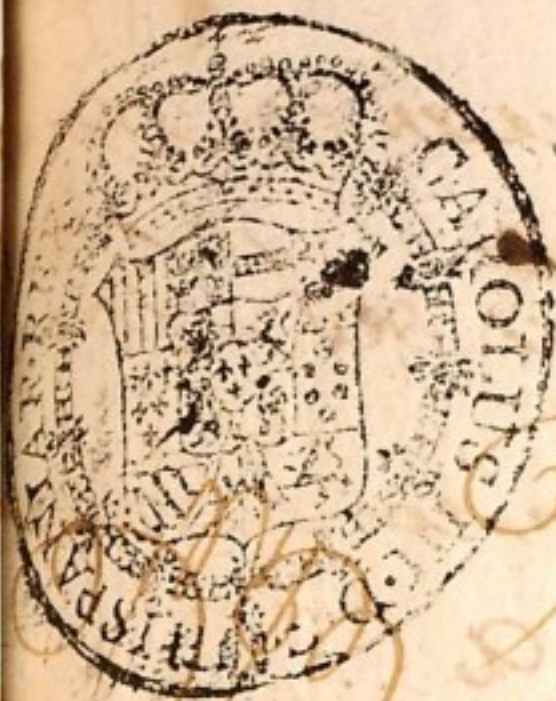 CAROLUS D. G. HISPANIAR. R